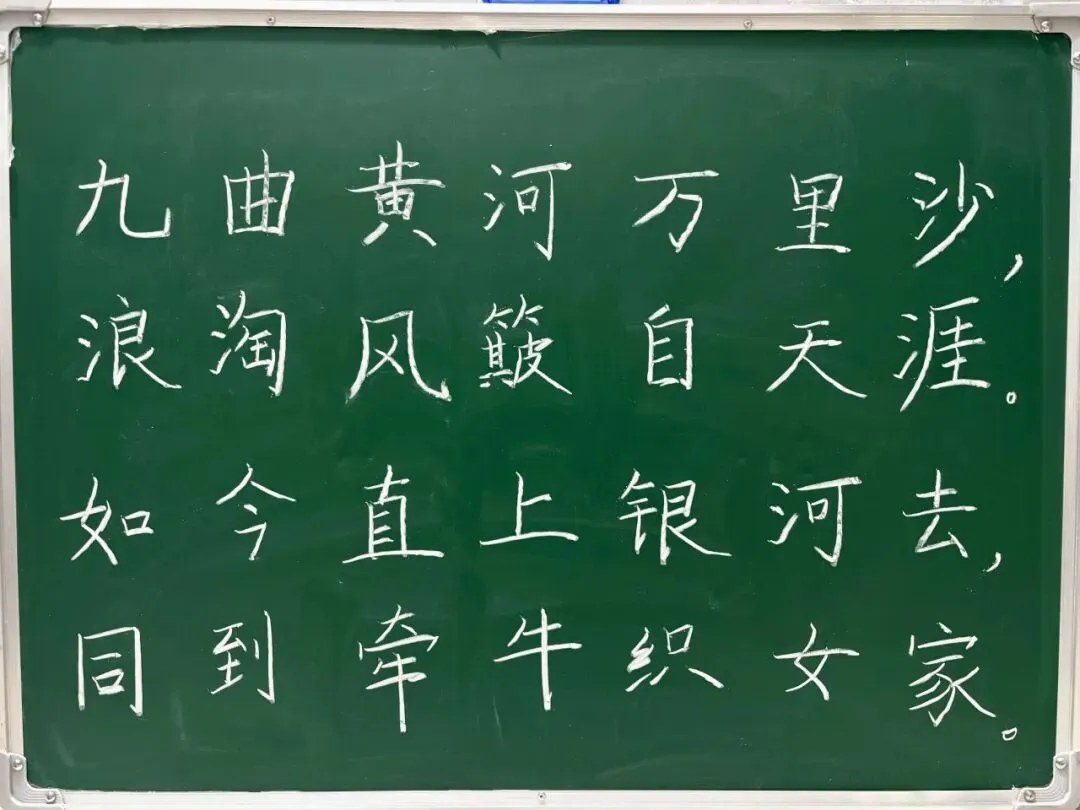 九曲黄河万里沙，
浪淘风簸自天涯。
如今直上银河去，
同到牵牛织女家。